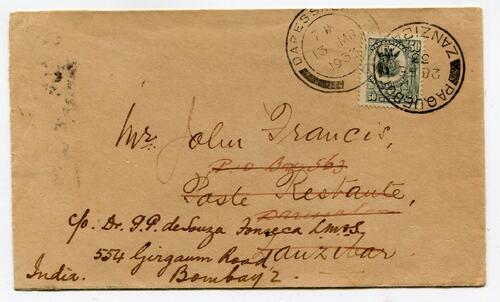 DARESSALAM
13 MR
1933
ZANZIBAR
28
PAQUEBOT
50
50
Mr. John Francis,
P.O Box 563
Poste Restante,
Daressalam
c/o. Dr. G.P. deSouza Fonseca Lmvs
Zanzibar
554 Girgaum Road
India. Bombay 2.